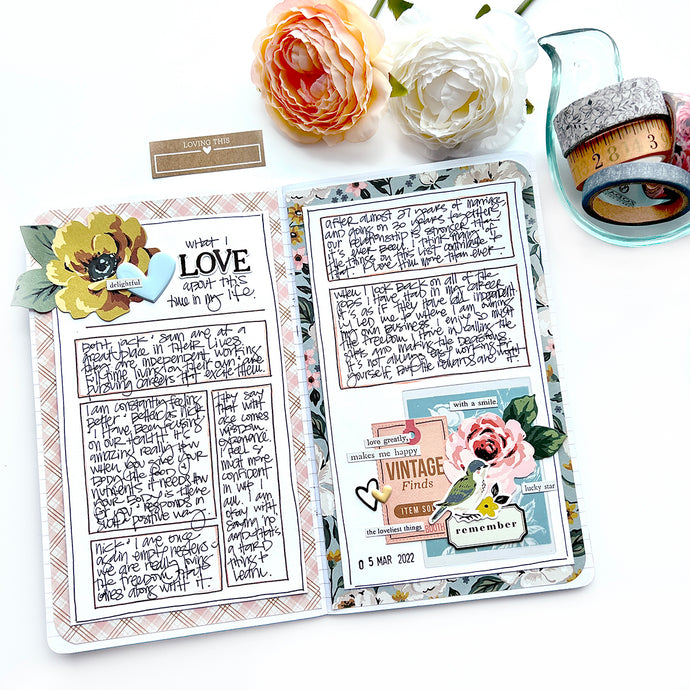 LOVING THIS
what I
LOVE
about this
time in my life.
delightful
Both Jack + Sam are at a
great place in their lives
they are independent, working
full time, living on their own and
pursuing careers that excite them.
I am constantly feeling
better + better as Nick +
I have been focusing
on our health. It's
amazing really how
when you give your
body the food +
nutrients it needs how
your body is there
for you + responds in
such positive ways.
They say
that with
age comes
wisdom,
experience.
I feel so
much more
confident
in who I
am. I am
okay with
saying no
and that's
a hard
thing to
learn.
Nick + I are once
again empty nesters +
we are really loving
the freedom that
comes along with it.
after almost 27 years of marriage
and going on 30 years together
our relationship is stronger than
it's ever been. I think many of
the things on this list contribute to
that. I love him more than ever.
when I look back on all of the
jobs I have had in my career
it's as if they have all happened
to help me to where I am owning
my own business. I enjoy so much
the freedom I have in calling the
shots and making the decisions.
It's not always easy working for
yourself, but the rewards are worth
it.
with a smile.
love greatly,
makes me happy
VINTAGE
Finds
ITEM SO
BOOTH
lucky star
the loveliest things
remember
05 MAR 2022
2 8 3 4